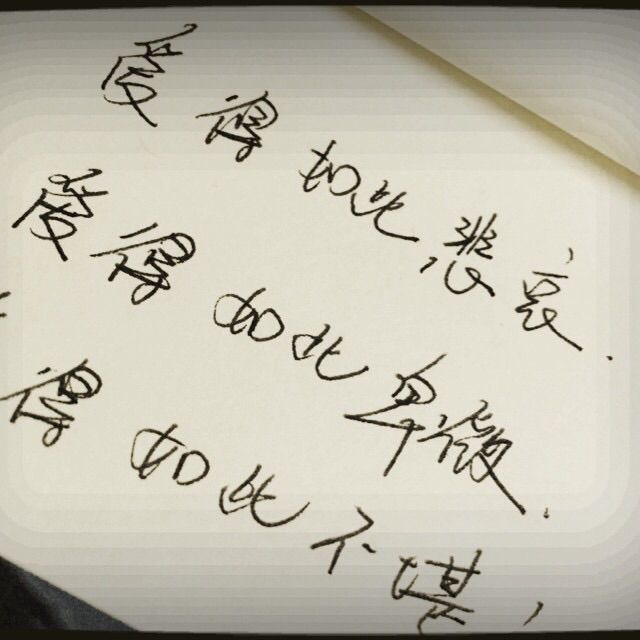 爱得如此悲哀.
爱得如此卑微.
得如此不堪,